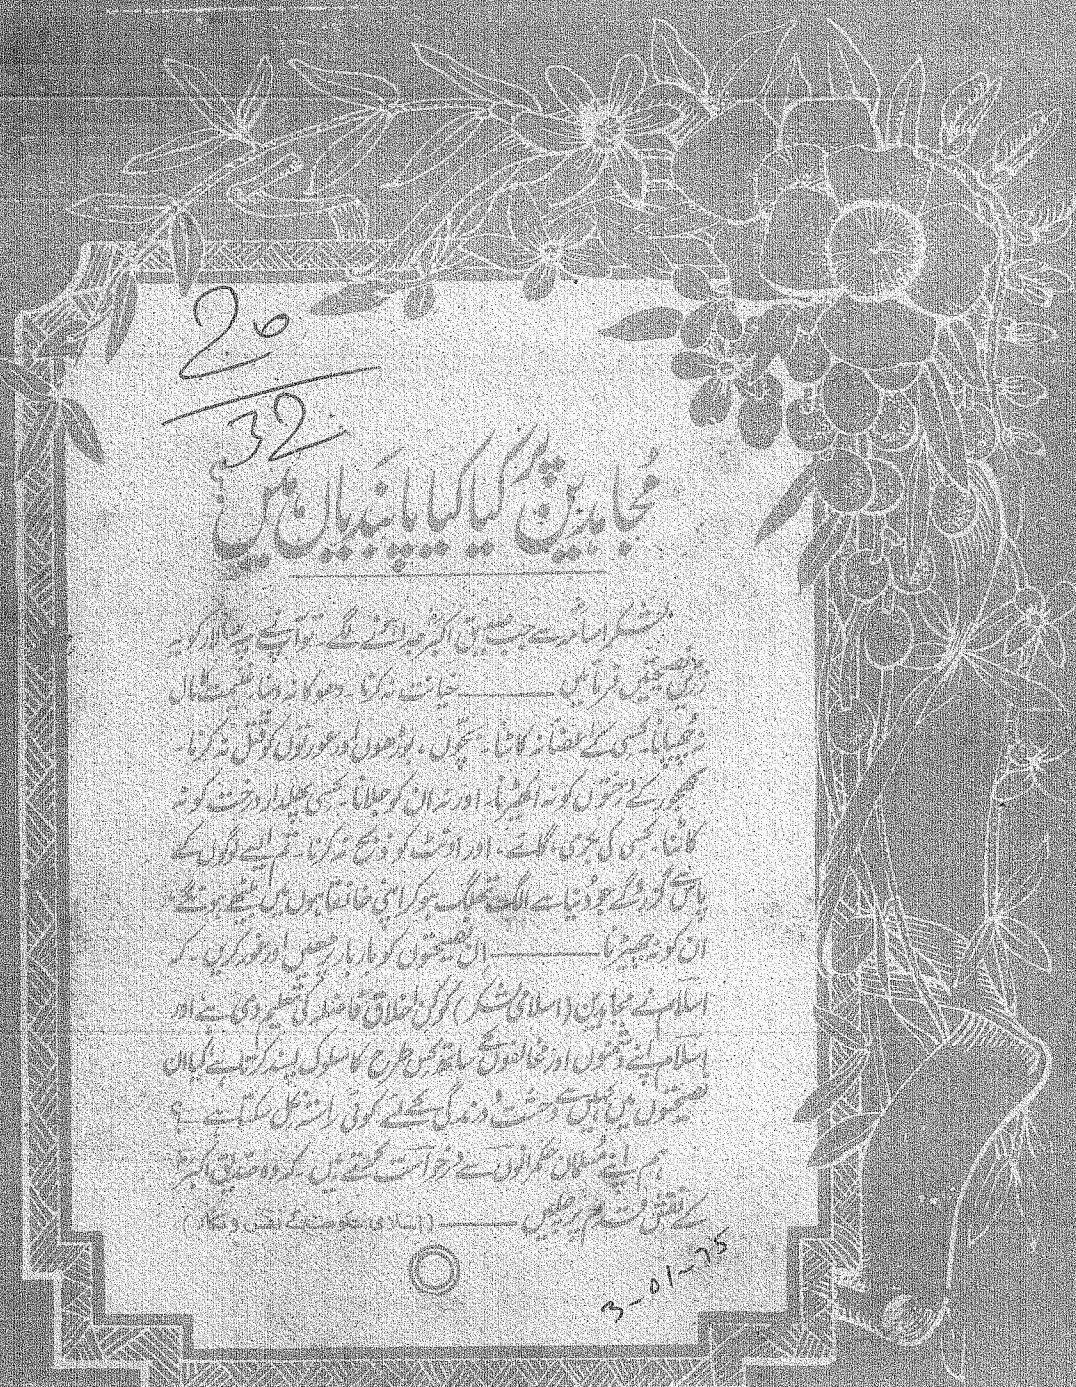 2ه
32
مجاہدین پر کیا کیا پابندیاں ہیں
لشکر اسامہؓ سے جب صدیق اکبرؓ جدا ہونے لگے۔ تو آپ نے سپہ سالار کو یہ
زریں نصیحتیں فرمائیں ——— خیانت نہ کرنا۔ دھوکا نہ دینا۔ غنیمت کا مال
نہ چھپانا۔ کسی کے اعضا نہ کاٹنا۔ بچوں، بوڑھوں اور عورتوں کو قتل نہ کرنا۔
کھجور کے درختوں کو نہ اکھیڑنا۔ اور نہ ان کو جلانا۔ کسی پھلدار درخت کو نہ
کاٹنا۔ کسی کی بکری، گائے، اور اونٹ کو ذبح نہ کرنا۔ تم ایسے لوگوں کے
پاس سے گزرو گے جو دنیا سے الگ تھلگ ہو کر اپنی خانقاہوں میں بیٹھے ہونگے۔
ان کو نہ چھیڑنا ——— ان نصیحتوں کو بار بار پڑھیں اور غور کریں۔ کہ
اسلام نے مجاہدین (اسلامی لشکر) کو کن اخلاق فاضلہ کی تعلیم دی ہے اور
اسلام اپنے دشمنوں اور مخالفوں کے ساتھ کس طرح کا سلوک پسند کرتا ہے کیا ان
نصیحتوں میں کہیں سے وحشت و درندگی کے لئے کوئی راستہ نکل سکتا ہے۔؟
ہم اپنے مسلمان حکمرانوں سے درخواست کرتے ہیں۔ کہ وہ صدیق اکبرؓ
کے نقش قدم پر چلیں ——— (اسلامی حکومت کے نقش و نگار)
3-01-75